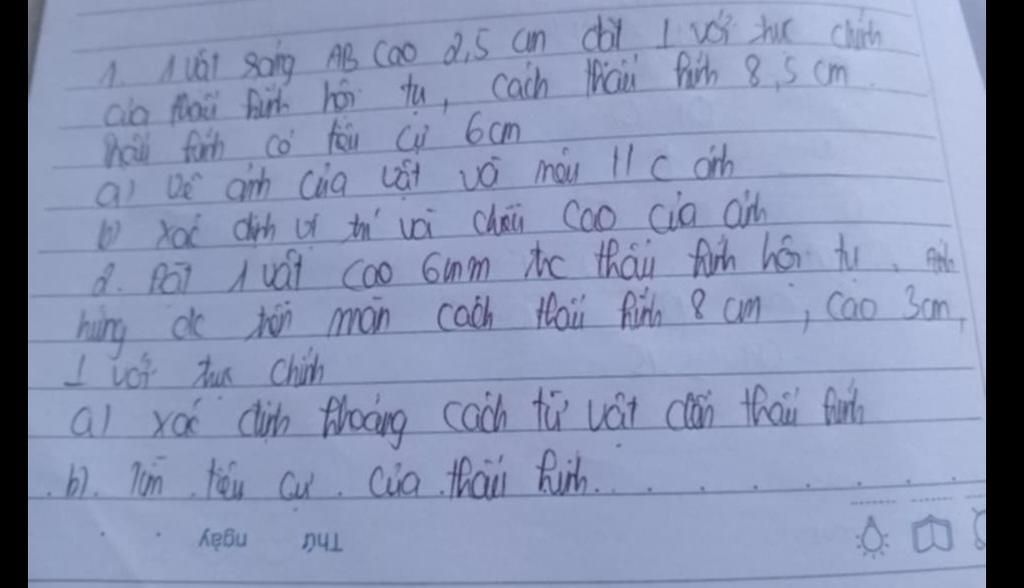 1. 1 vật sáng AB cao 2,5 cm đặt ⊥ với trục chính
của thấu kính hội tụ, cách thấu kính 8,5 cm.
thấu kính có tiêu cự 6cm
a) vẽ ảnh của vật và nêu t/c ảnh
b) xác định vị trí và chiều cao của ảnh
2. Đặt 1 vật cao 6mm trc thấu kính hội tụ. Ảnh
hứng đc trên màn cách thấu kính 8 cm, cao 3cm,
⊥ với trục chính
a) xác định khoảng cách từ vật đến thấu kính
b). Tìm tiêu cự của thấu kính.
Thứ ngày